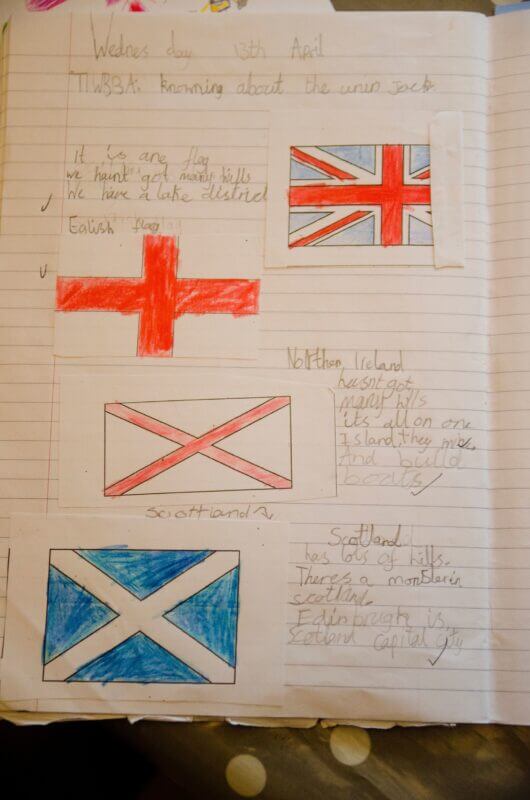 Wednes day 13th April
TIWBBA: knowning about the unin jack
It is are flag
we haunt got many hills
We have a lake district
Ealish flag
Nothen Ireland
hasnt got
many hills
its all on one
Island, they
And build
boats
Scottland
Scotland
has lots of hills.
Theres a monster in
scotland.
Edinbrugh is
Scotland capital city